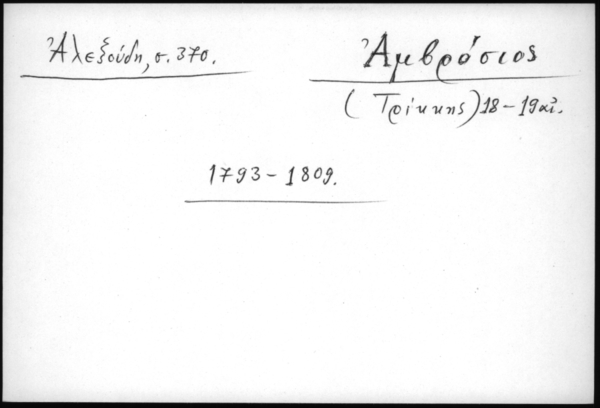 Ἀλεξούδη, σ. 370.
Ἀμβρόσιος
(Τρίκκης) 18-19 αἰ.
1793-1809.